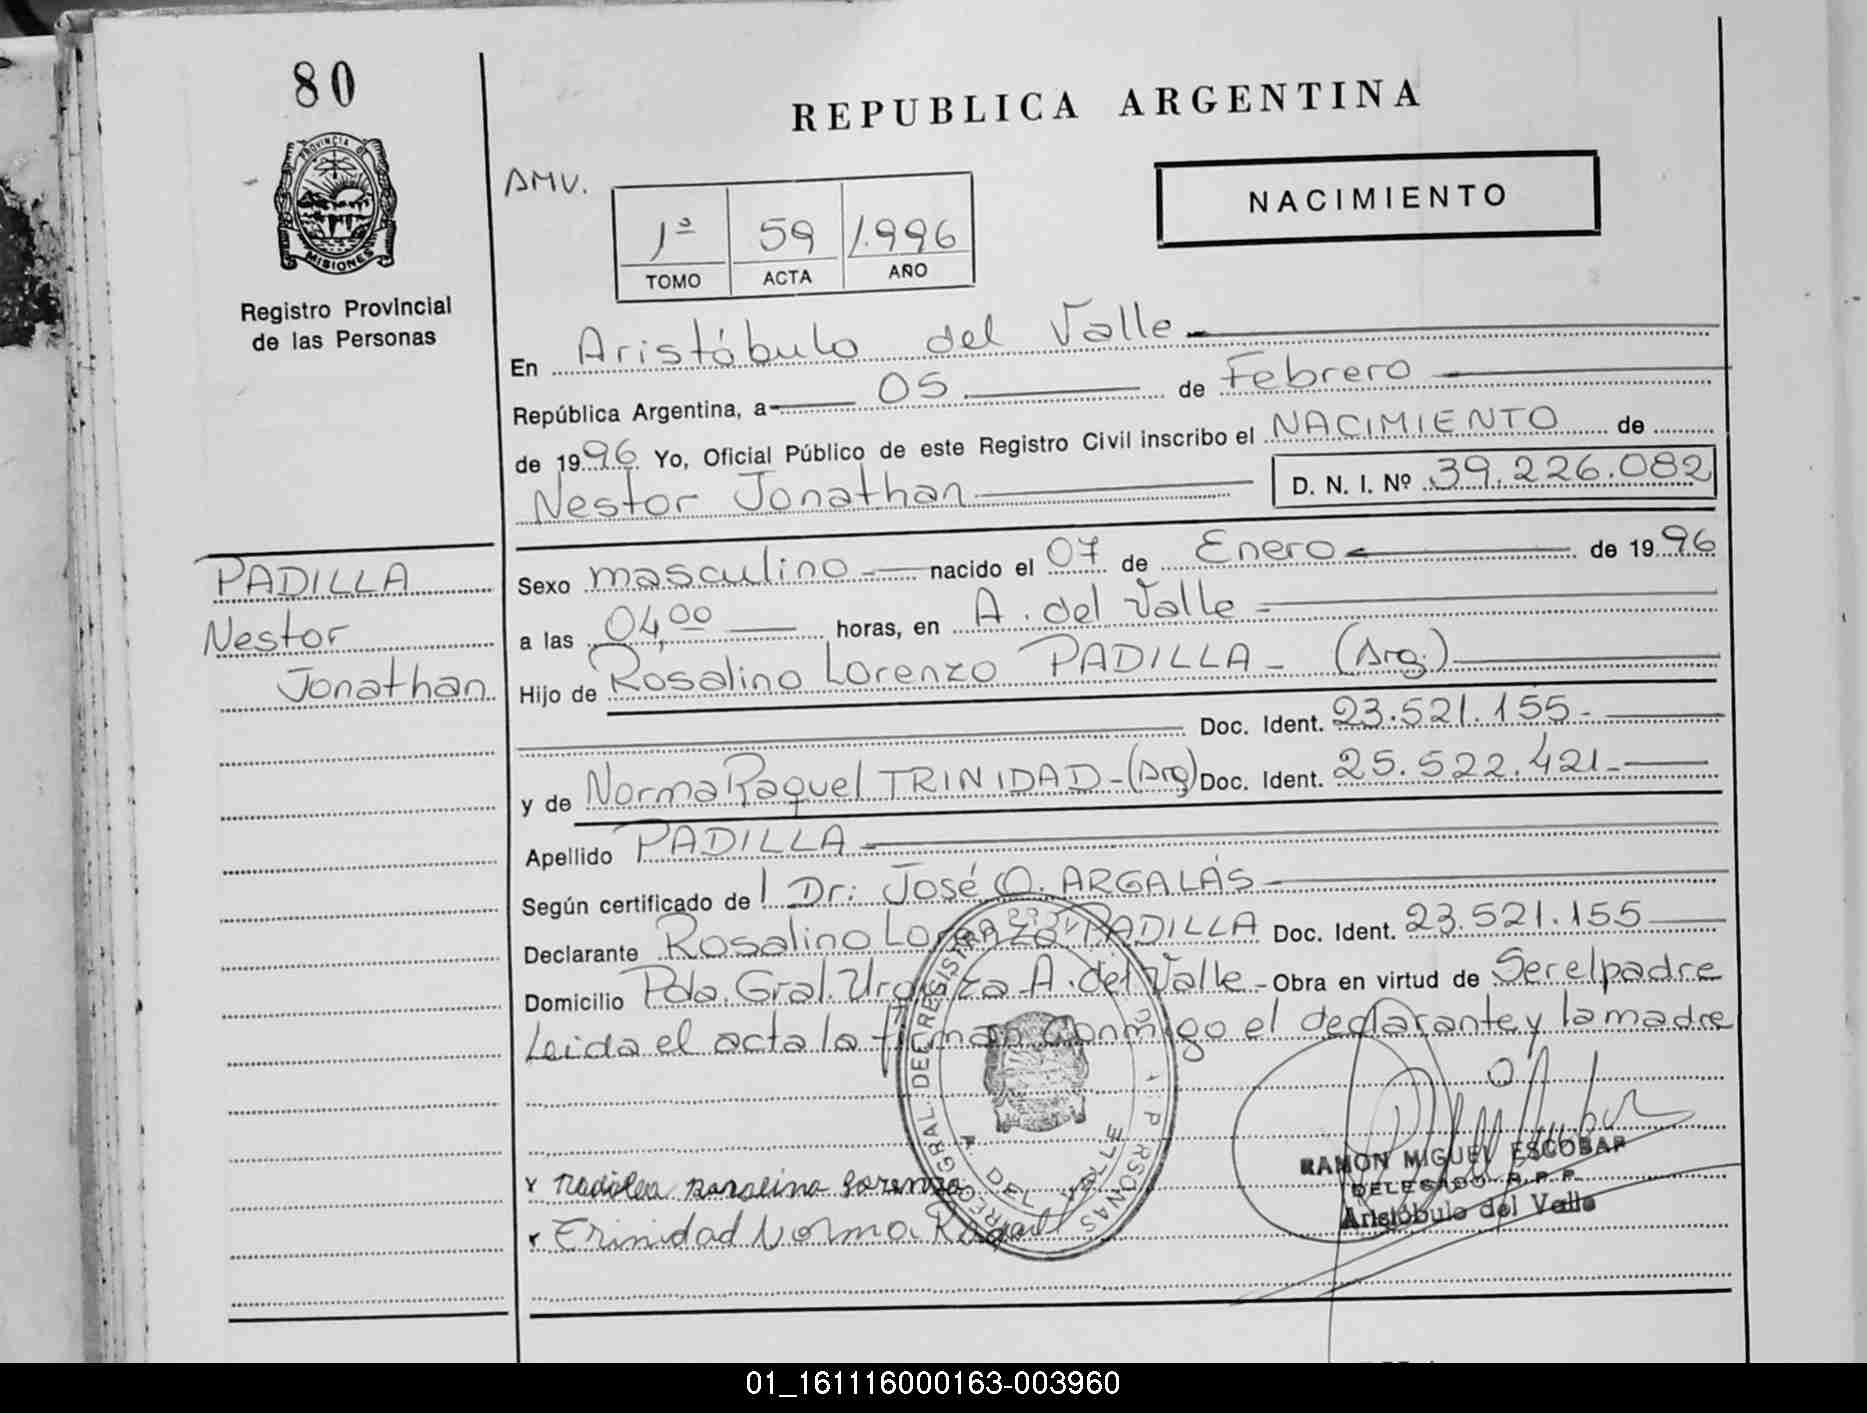 80
REPUBLICA ARGENTINA
PROVINCIA DE
MISIONES
Registro Provincial
de las Personas
AMV.
1º 59 1.996
TOMO ACTA AÑO
NACIMIENTO
En Aristóbulo del Valle
República Argentina, a 05 de Febrero
de 1996 Yo, Oficial Público de este Registro Civil inscribo el NACIMIENTO de
Nestor Jonathan D. N. I. Nº 39.226.082
PADILLA
Nestor
Jonathan
Sexo masculino nacido el 07 de Enero de 1996
a las 04,00 horas, en A. del Valle
Hijo de Rosalino Lorenzo PADILLA - (Arg.)
Doc. Ident. 23.521.155-
y de Norma Raquel TRINIDAD - (Arg) Doc. Ident. 25.522.421-
Apellido PADILLA
Según certificado de l Dr: José O. ARGALÁS
Declarante Rosalino Lorenzo PADILLA Doc. Ident. 23.521.155
Domicilio Pda. Gral. Urquiza A. del Valle - Obra en virtud de Ser el padre
Leida el acta la firman conmigo el declarante y la madre
A DEL VALLE
RAMON MIGUEL ESCOBAR
DELEGADO R.P.P.
Aristóbulo del Valle
x Padilla Lorenzo
x Trinidad Norma Raquel
01_161116000163-003960